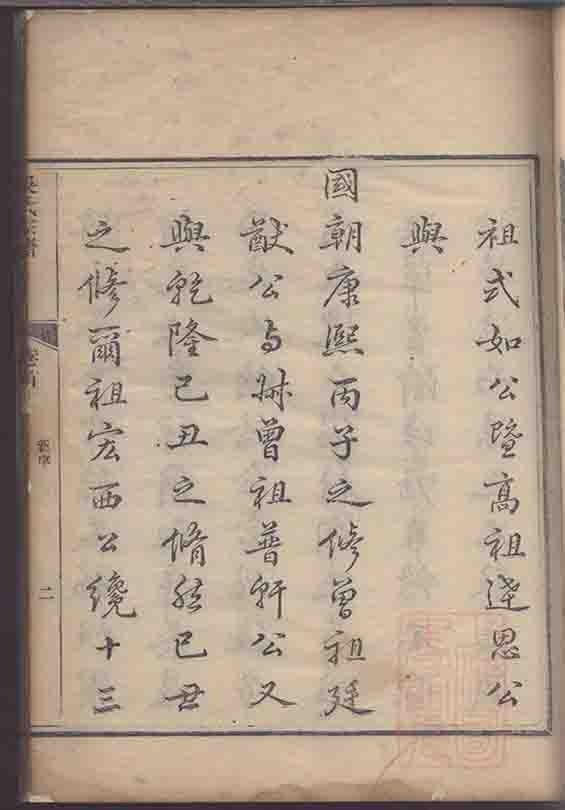 祖式如公暨高祖逵恩公
與
國朝康熙丙子之修曾祖廷
猷公与叔曾祖普軒公又
與乾隆己丑之脩然己丑
之修爾祖宏西公纔十三
氏宗譜
卷首
舊序
二